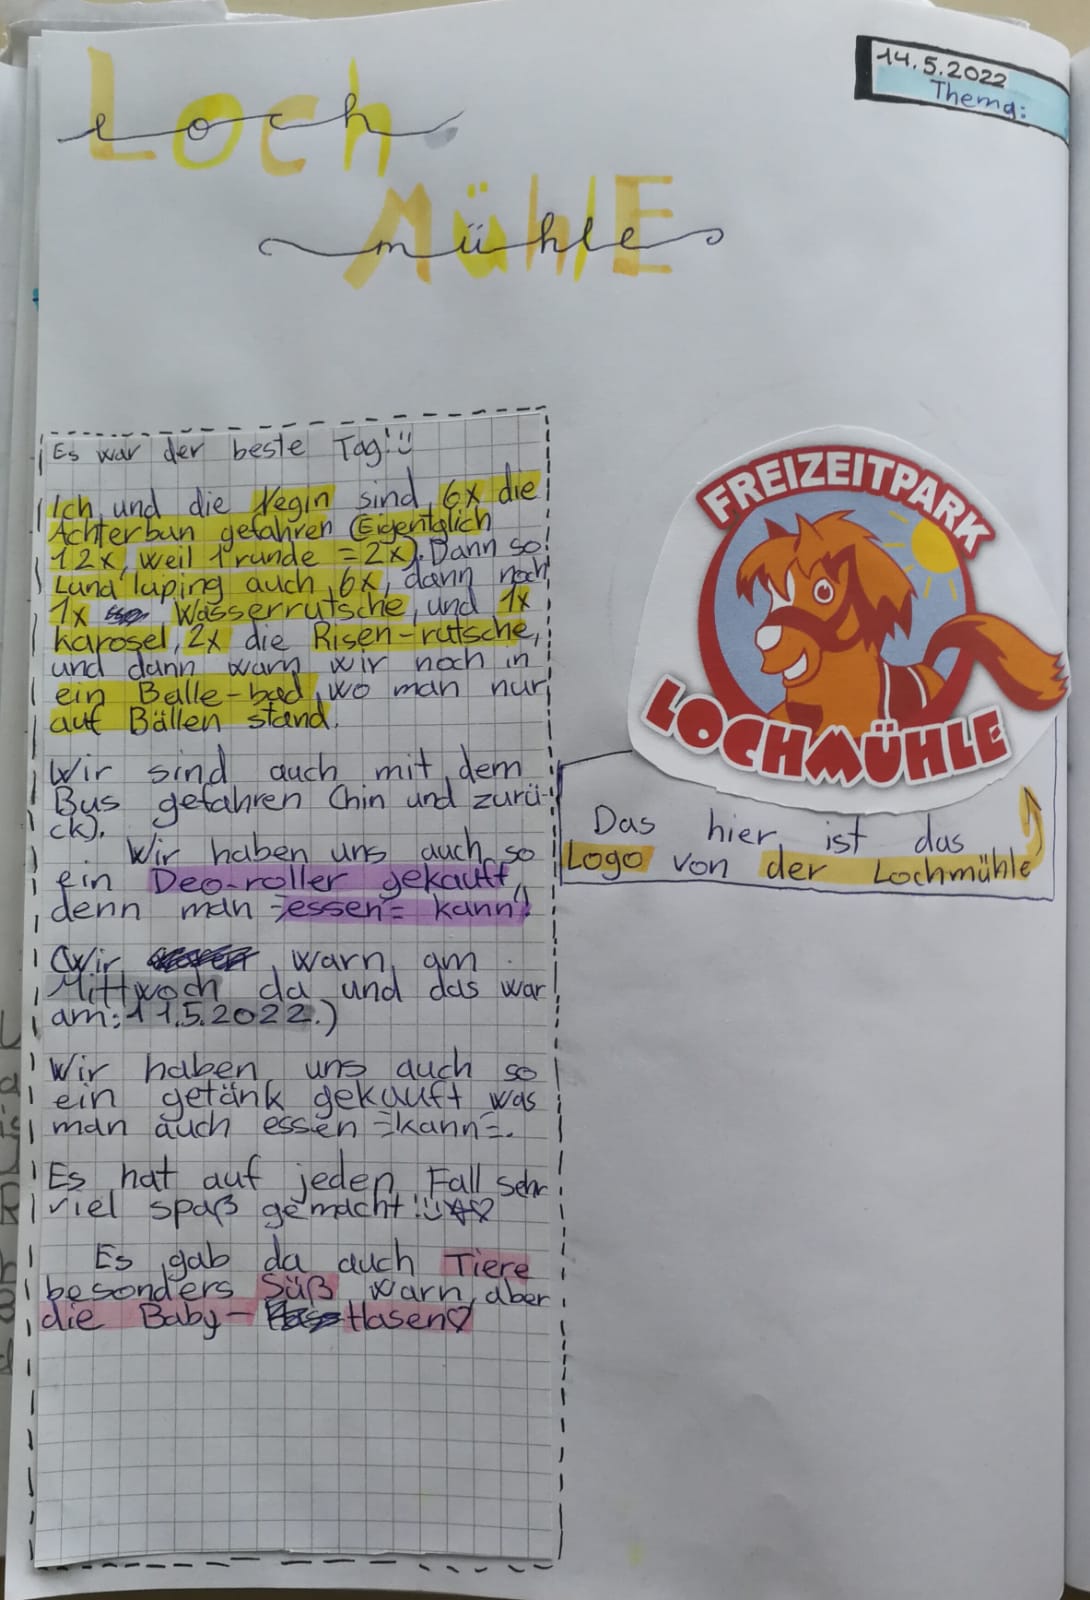 14.5.2022
Thema:
Loch
loch
MühlE
mühle
Es war der beste Tag!
Ich und die Negin sind 6x die
Achterban gefahren (Eigentglich
12x, weil 1 runde = 2x). Dann so
Land luping auch 6x, dann noch
1x Wasserrutsche, und 1x
karosel, 2x die Risen-rutsche,
und dann warn wir noch in
ein Bälle-bad, wo man nur
auf Bällen stand.
Wir sind auch mit dem
Bus gefahren (hin und zurü-
ck).
Wir haben uns auch so
ein Deo-roller gekauft,
denn man =essen= kann!
(Wir warn am
Mittwoch da und das war
am: 11.5.2022.)
Wir haben uns auch so
ein getänk gekauft was
man auch essen =kann=.
Es hat auf jeden Fall sehr
viel spaß gemacht!
Es gab da auch Tiere
besonders Süß warn aber
die Baby- Hasen♡
FREIZEITPARK
LOCHMÜHLE
Das hier ist das
Logo von der Lochmühle